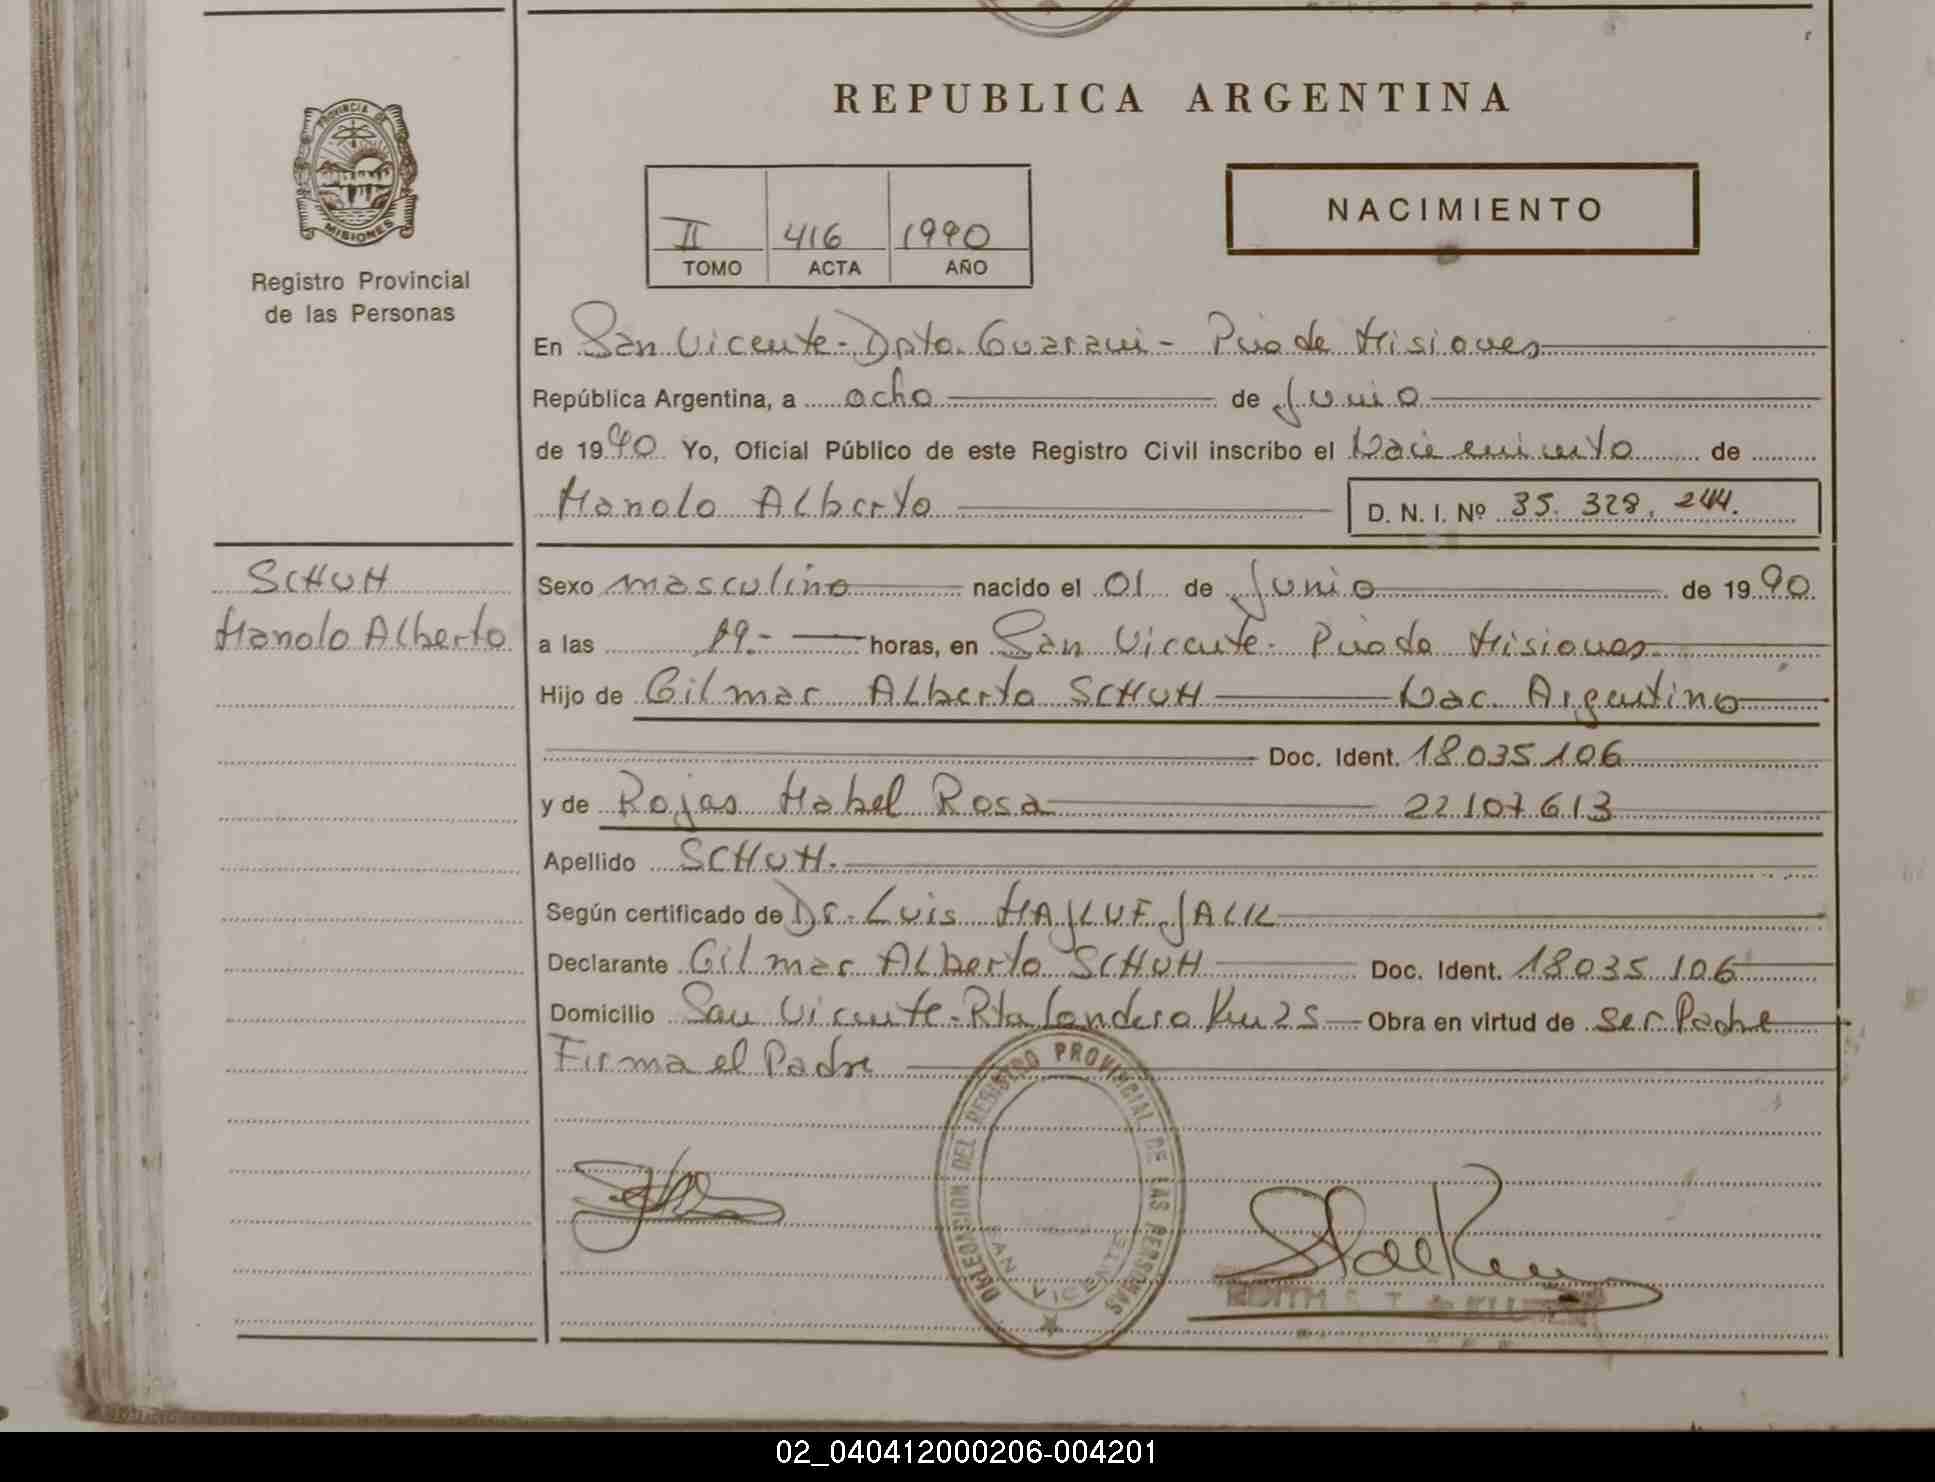 REPUBLICA ARGENTINA
PROVINCIA DE
MISIONES
Registro Provincial
de las Personas
II 416 1990
TOMO ACTA AÑO
NACIMIENTO
En San Vicente - Dpto. Guarani - Pcia de Misiones
República Argentina, a ocho de Junio
de 1990 Yo, Oficial Público de este Registro Civil inscribo el Nacimiento de
Manolo Alberto D. N. I. Nº 35. 328. 244.
SCHUH
Manolo Alberto
Sexo masculino nacido el 01 de Junio de 1990
a las 19.- horas, en San Vicente - Pcia de Misiones
Hijo de Gilmar Alberto SCHUH Nac. Argentino
Doc. Ident. 18.035.106
y de Rojas Mabel Rosa 22.107.613
Apellido SCHUH.
Según certificado de Dr. Luis MAJLUF JALIL
Declarante Gilmar Alberto SCHUH Doc. Ident. 18.035.106
Domicilio San Vicente - Rta Londero Km 25 Obra en virtud de ser Padre
Firma el Padre
DELEGACION DEL REGISTRO PROVINCIAL DE LAS PERSONAS
SAN VICENTE
EDITH
02_040412000206-004201